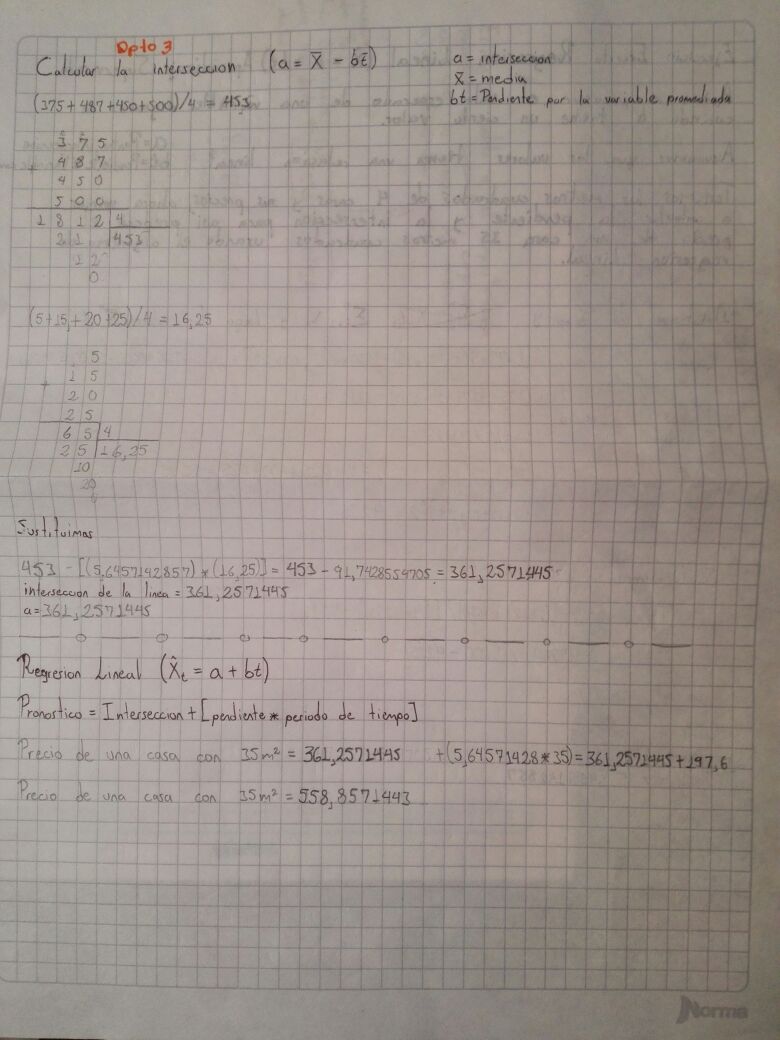 Dpto 3
Calcular la interseccion (a = X̄ - bt̄)
a = interseccion
x̄ = media
bt = Pendiente por la variable promediada
(375 + 487 + 450 + 500)/4 = 453
3 7 5
+ 4 8 7
4 5 0
5 0 0
1 8 1 2 4
2 1 453
1 2
0
(5+15,+20+25)/4 = 16,25
5
+ 1 5
2 0
2 5
6 5 4
2 5 16,25
10
20
0
Sustituimos
453 - [(5,6457142857) * (16,25)] = 453 - 91,7428554705 = 361,2571445
interseccion de la linea = 361,2571445
a = 361,2571445
Regresion Lineal (X̂t = a + bt)
Pronostico = Interseccion + [pendiente * periodo de tiempo]
Precio de una casa con 35m² = 361,2571445 + (5,64571428 * 35) = 361,2571445 + 197,6
Precio de una casa con 35m² = 558,8571443
Norma